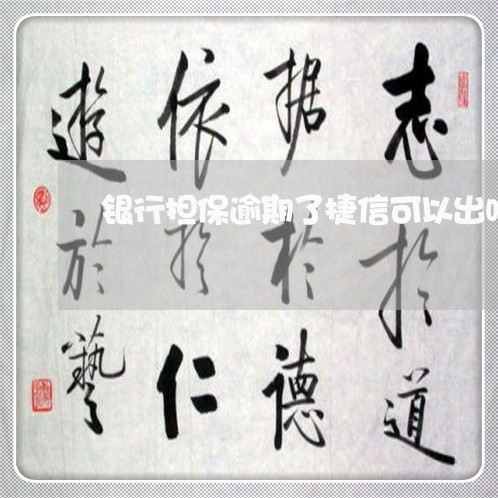 志於道
据於德
依於仁
遊於藝
银行担保逾期了捷信可以出